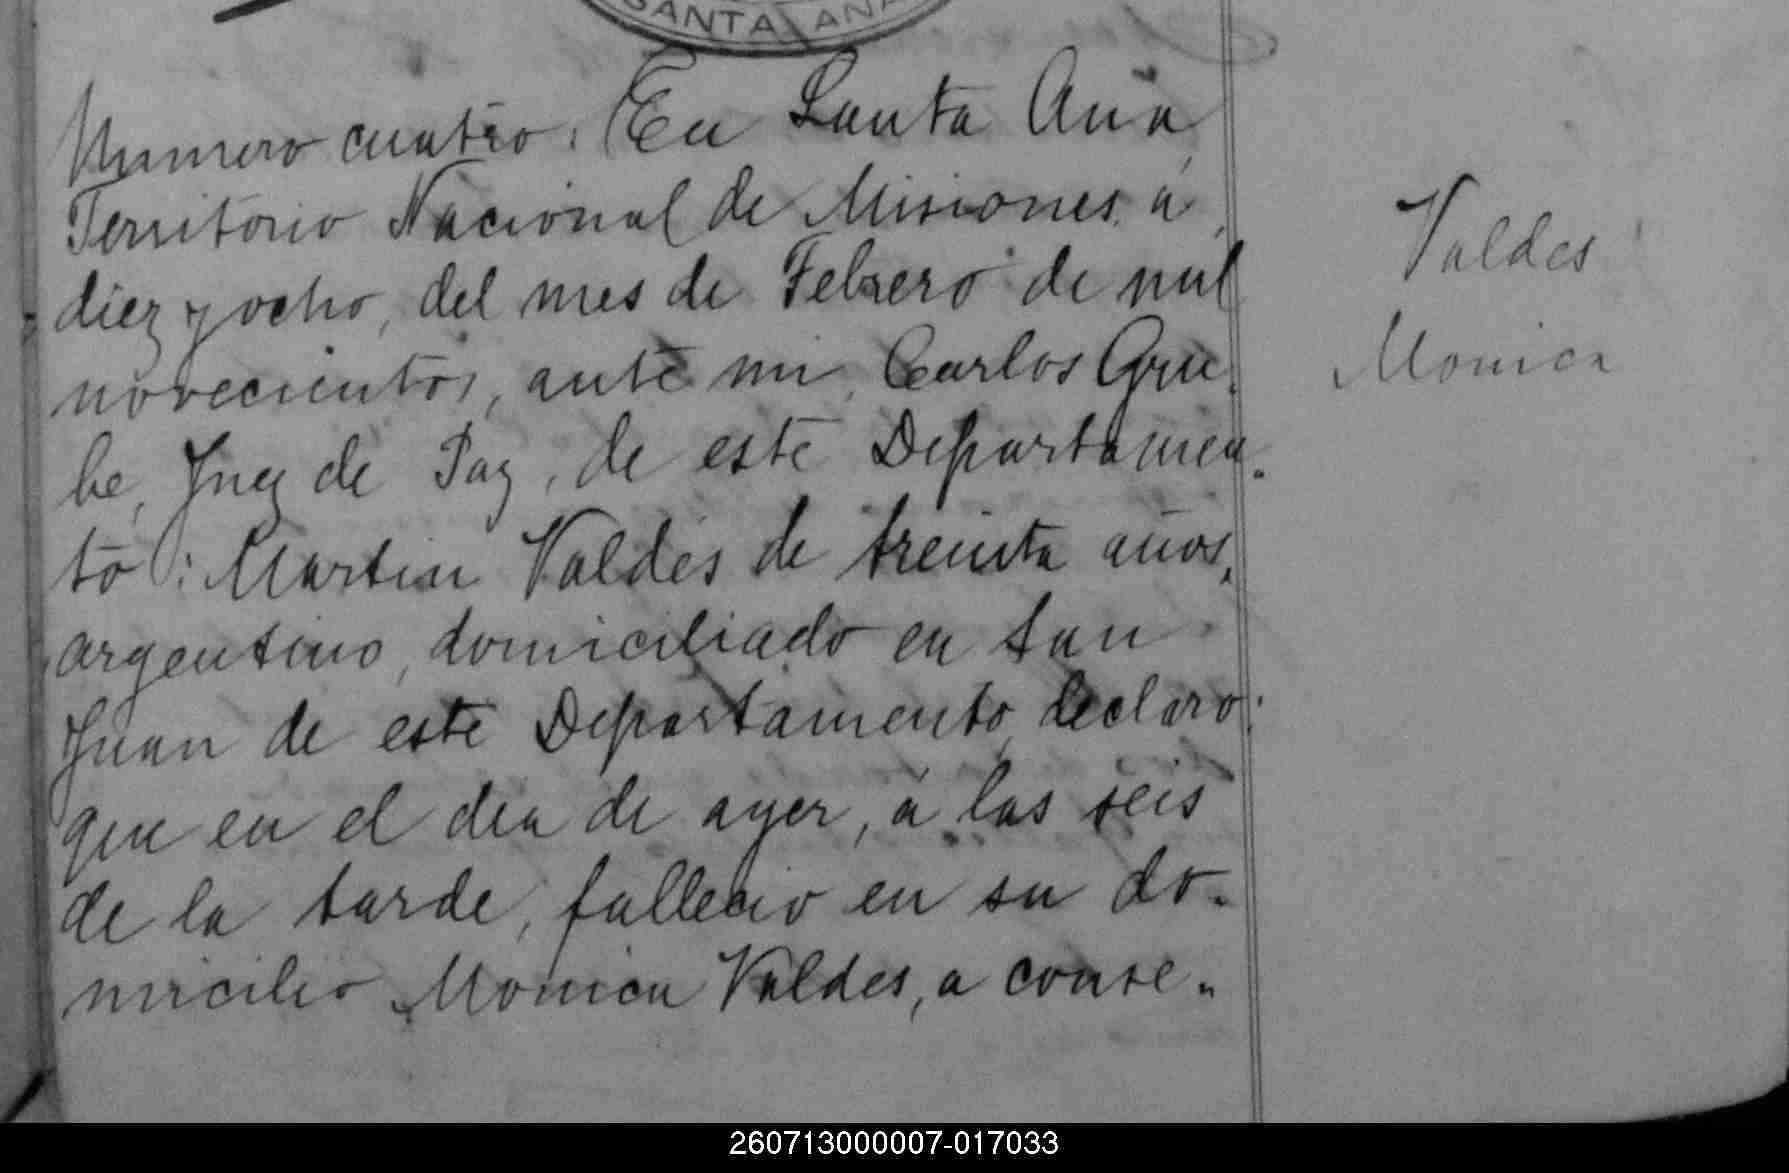 SANTA ANA
Numero cuatro: En Santa Ana,
Territorio Nacional de Misiones á,
diez y ocho, del mes de Febrero de mil
novecientos, ante mi, Carlos Gru-
be, Juez de Paz, de este Departamen-
to: Martin Valdés de treinta años,
argentino, domiciliado en San
Juan de este Departamento, declaro:
que en el dia de ayer, á las seis
de la tarde, fallecio en su do-
micilio Monica Valdes, a conse-
Valdes
Monica
260713000007-017033